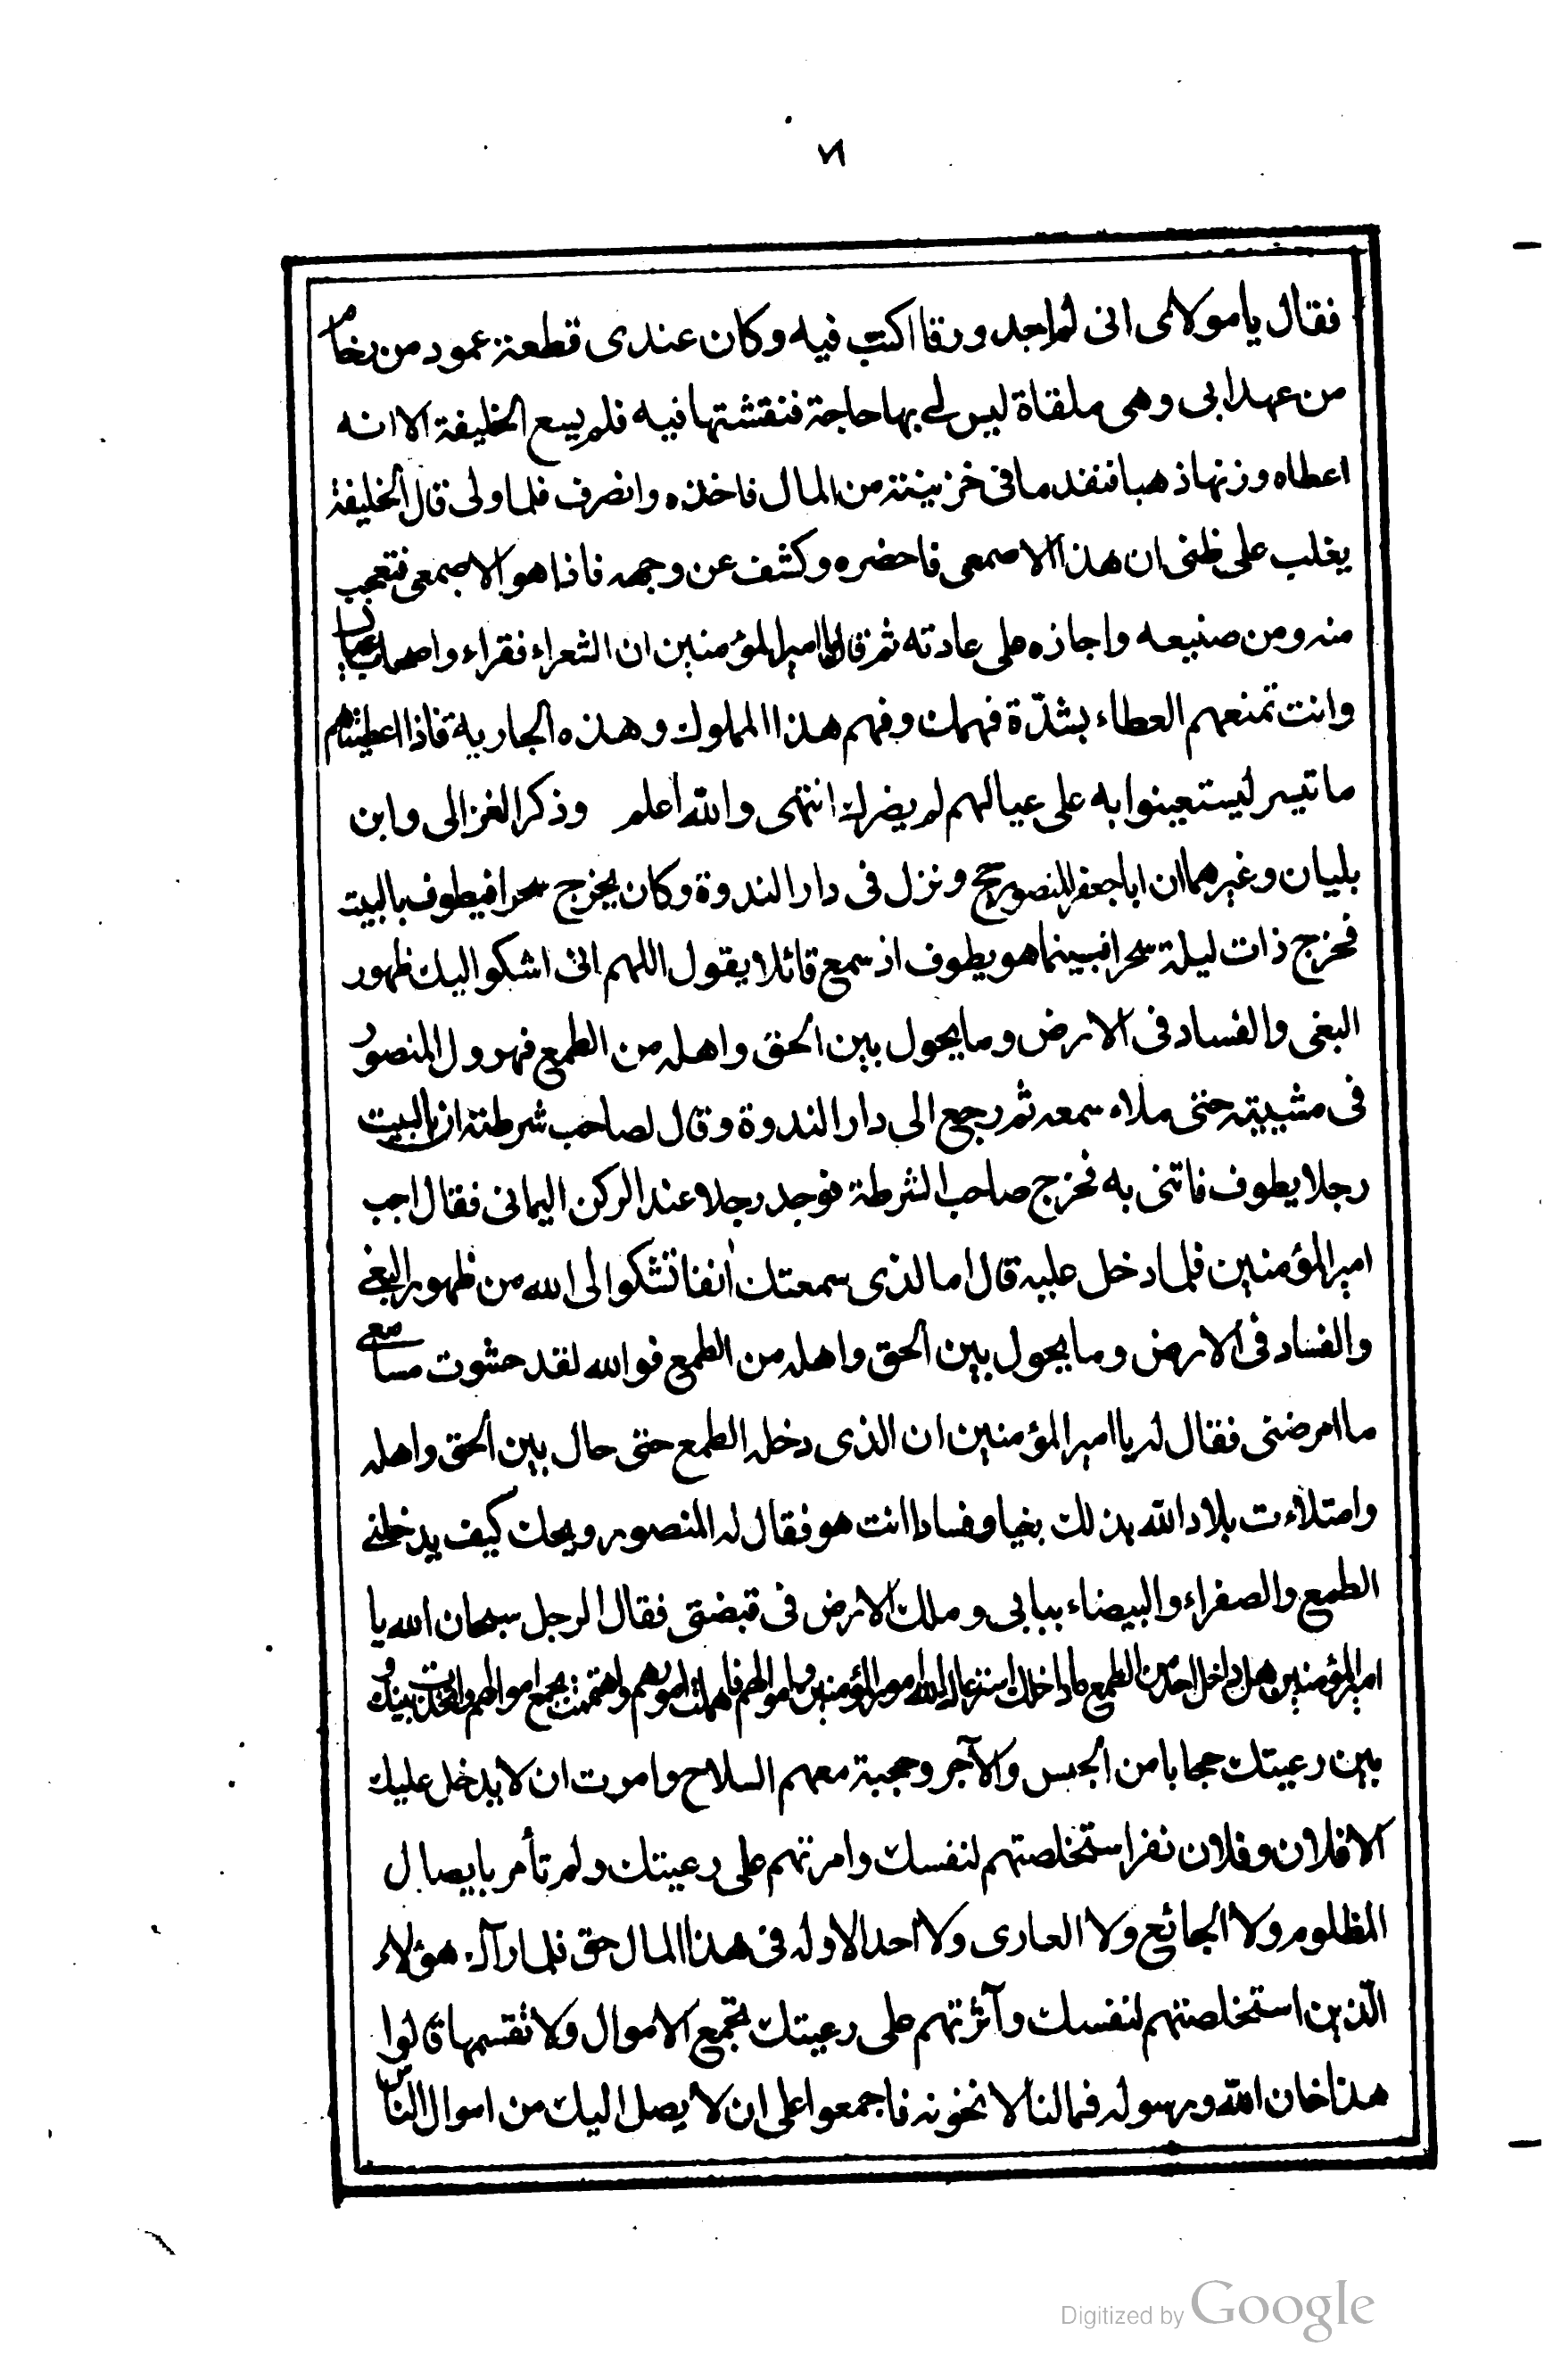 ٧٦
فقال يا مولاى انى لم اجد ورقا اكتب فيه وكان عندى قطعة عمود من رخام
من عهد ابى وهى ملقاة ليس لى بها حاجة فنقشتها فيه فلم يسع الخليفة الا انه
اعطاه وزنها ذهبا فنفد ما فى خزينته من المال فاخذه وانصرف فلما ولى قال الخليفة
يغلب على ظنى ان هذا الاصمعى فاحضره وكشف عن وجهه فاذا هو الاصمعى فتعجب
منه ومن صنيعه واجازه على عادته ثم قال يا امير المؤمنين ان الشعراء فقراء واصحاب عيال
وانت تمنعهم العطاء بشدّة فهمك وفهم هذا المملوك وهذه الجارية فاذا اعطيتهم
ما تيسر ليستعينوا به على عيالهم لم يضرك انتهى والله اعلم وذكر الغزالى وابن
بليان وغيرهما ان ابا جعفر المنصور حج ونزل فى دار الندوة وكان يخرج سحرا فيطوف بالبيت
فخرج ذات ليلة سحرا فبينما هو يطوف اذ سمع قائلا يقول اللهم انى اشكو اليك ظهور
البغى والفساد فى الارض وما يحول بين الحق واهله من الطمع فهرول المنصور
فى مشيته حتى ملاء سمعه ثم رجع الى دار الندوة وقال لصاحب شرطته ان بالبيت
رجلا يطوف فاتنى به فخرج صاحب الشرطة فوجد رجلا عند الركن اليمانى فقال اجب
امير المؤمنين فلما دخل عليه قال اما لذى سمعتك انفا تشكو الى الله من ظهور البغى
والفساد فى الارض وما يحول بين الحق واهله من الطمع فوالله لقد حشوت مسامعى
ما امرضنى فقال له يا امير المؤمنين ان الذى دخله الطمع حتى حال بين الحق واهله
وامتلاءت بلاد الله بذلك بغيا وفسادا انت هو فقال له المنصور ويحك كيف يدخلنى
الطمع والصفراء والبيضاء ببابى وملك الارض فى قبضتى فقال الرجل سبحان الله يا
امير المؤمنين هل داخل احدا من الطمع ما داخلك استرعاك الله امور المؤمنين واموالهم فاهملت امورهم واهتممت بجمع اموالهم واتخذت بينك و
بين رعيتك حجابا من الجبس والآجر وحجبة معهم السلاح وامرت ان لا يدخل عليك
الا فلان وفلان نفر استخلصتهم لنفسك وامرتهم على رعيتك ولم تأمر بايصال
المظلوم ولا الجائع ولا العارى ولا احد الا وله فى هذا المال حق فلما رآك هؤلاء
الّذين استخلصتهم لنفسك وآثرتهم على رعيتك تجمع الاموال ولا تقسمها قالوا
هذا خان الله ورسوله فما لنا لا نخونه فاجمعوا على ان لا يصل اليك من اموال الناس
Digitized by Google